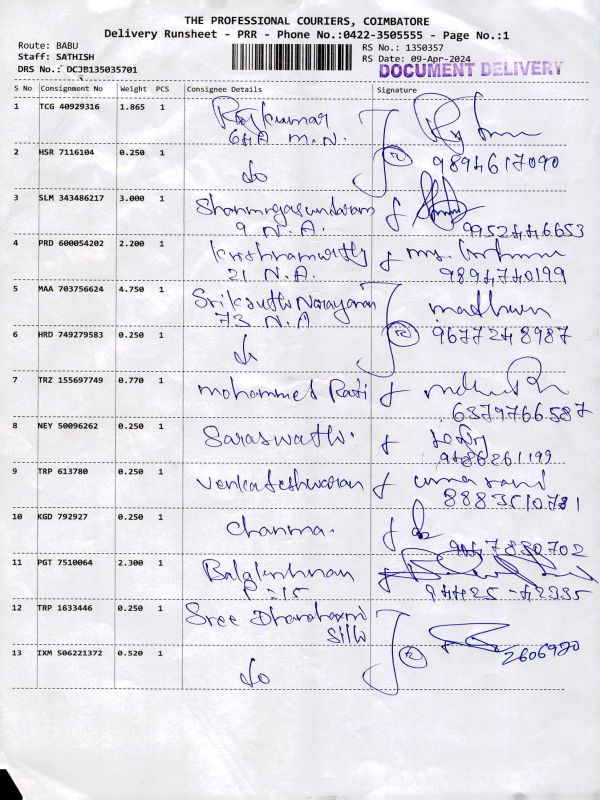 THE PROFESSIONAL COURIERS, COIMBATORE
Delivery Runsheet - PRR - Phone No.:0422-3505555 - Page No.:1
Route: BABU
Staff: SATHISH
DRS No.: DCJB135035701
RS No.: 1350357
RS Date: 09-Apr-2024
DOCUMENT DELIVERY
S No Consignment No Weight PCS Consignee Details Signature
1 TCG 40929316 1.865 1 Rajkumar
64A M.N.
2 HSR 7116104 0.250 1 do 9894617090
3 SLM 343486217 3.000 1 Shanmugasundaram
9 N.A. 9952446653
4 PRD 600054202 2.200 1 Krishnamurthy
21 N.A. 9894740199
5 MAA 703756624 4.750 1 Narayanan madhuvan
73 N.A
6 HRD 749279583 0.250 1 do 9677248987
7 TRZ 155697749 0.770 1 mohammed Rafi
6379766587
8 NEY 50096262 0.250 1 Saraswathi.
9486261199
9 TRP 613780 0.250 1 Venkateshwaran umarani
8883510781
10 KGD 792927 0.250 1 Chanma.
7830702
11 PGT 7510064 2.300 1 Balakrishnan
P-15 94425-42335
12 TRP 1633446 0.250 1 Sree
Silks
13 IXM 506221372 0.520 1 do 2606920